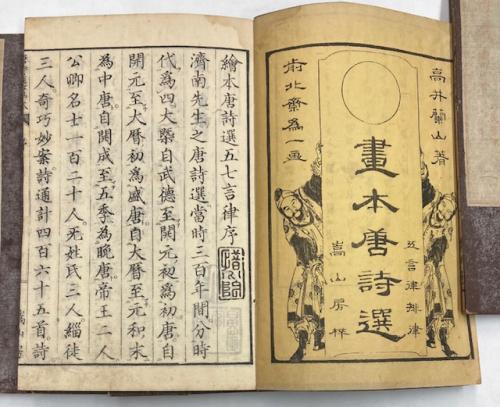 高井蘭山著
畫本唐詩選
五言律排律
嵩山房梓
前北齋為一画
繪本唐詩選五七言律序
濟南先生之唐詩選當時三百年間分時
代為四大槩自武德至開元初為初唐自
開元至大曆初為盛唐自大曆至元和末
為中唐自開成至五季為晚唐帝王二人
公卿名士一百二十人无姓氏三人緇徒
三人奇巧妙案詩通計四百六十五首詩